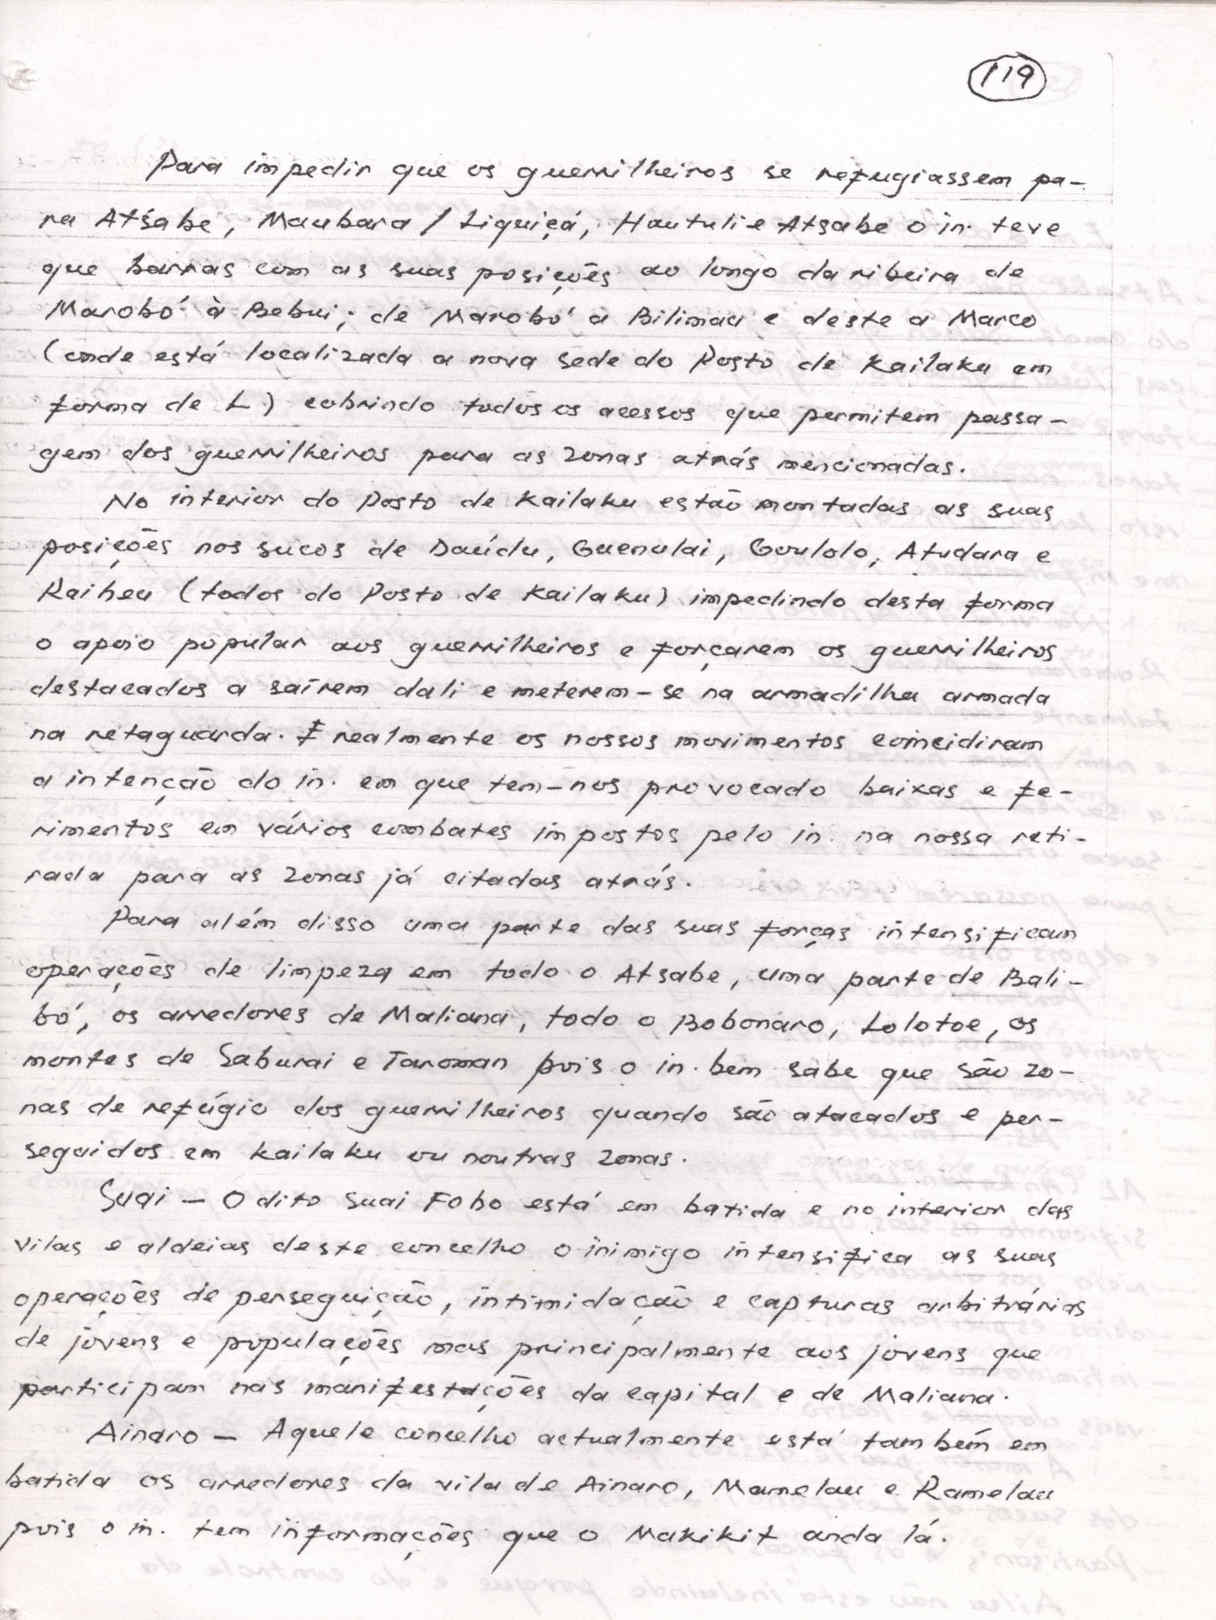 119
Para impedir que os guerrilheiros se refugiassem pa-
ra Atsabe, Maubara / Liquiçá, Hautuli e Atsabe o in. teve
que barras com as suas posições ao longo da ribeira de
Marobó à Bebui; de Marobó a Bilimau e deste a Marco
(onde está localizada a nova sede do Posto de Kailaku em
forma de L) cobrindo todos os acessos que permitem passa-
gem dos guerrilheiros para as zonas atrás mencionadas.
No interior do Posto de Kailaku estão montadas as suas
posições nos sucos de Daúdu, Guenulai, Goulolo, Atudara e
Raiheu (todos do Posto de Kailaku) impedindo desta forma
o apoio popular aos guerrilheiros e forçarem os guerrilheiros
destacados a saírem dali e meterem-se na armadilha armada
na retaguarda. E realmente os nossos movimentos coincidiram
a intenção do in. em que tem-nos provocado baixas e fe-
rimentos em vários combates impostos pelo in. na nossa reti-
rada para as zonas já citadas atrás.
Para além disso uma parte das suas forças intensificam
operações de limpeza em todo o Atsabe, uma parte de Bali-
bó, os arredores de Maliana, todo o Bobonaro, Lolotoe, os
montes de Saburai e Taroman pois o in. bem sabe que são zo-
nas de refúgio dos guerrilheiros quando são atacados e per-
seguidos em Kailaku ou noutras zonas.
Suai - O dito Suai Foho está em batida e no interior das
vilas e aldeias deste concelho o inimigo intensifica as suas
operações de perseguição, intimidação e capturas arbitrárias
de jovens e populações mas principalmente aos jovens que
participam nas manifestações da capital e de Maliana.
Ainaro - Aquele concelho actualmente está também em
batida os arredores da vila de Ainaro, Mamelau e Ramelau
pois o in. tem informações que o Makikit anda lá.